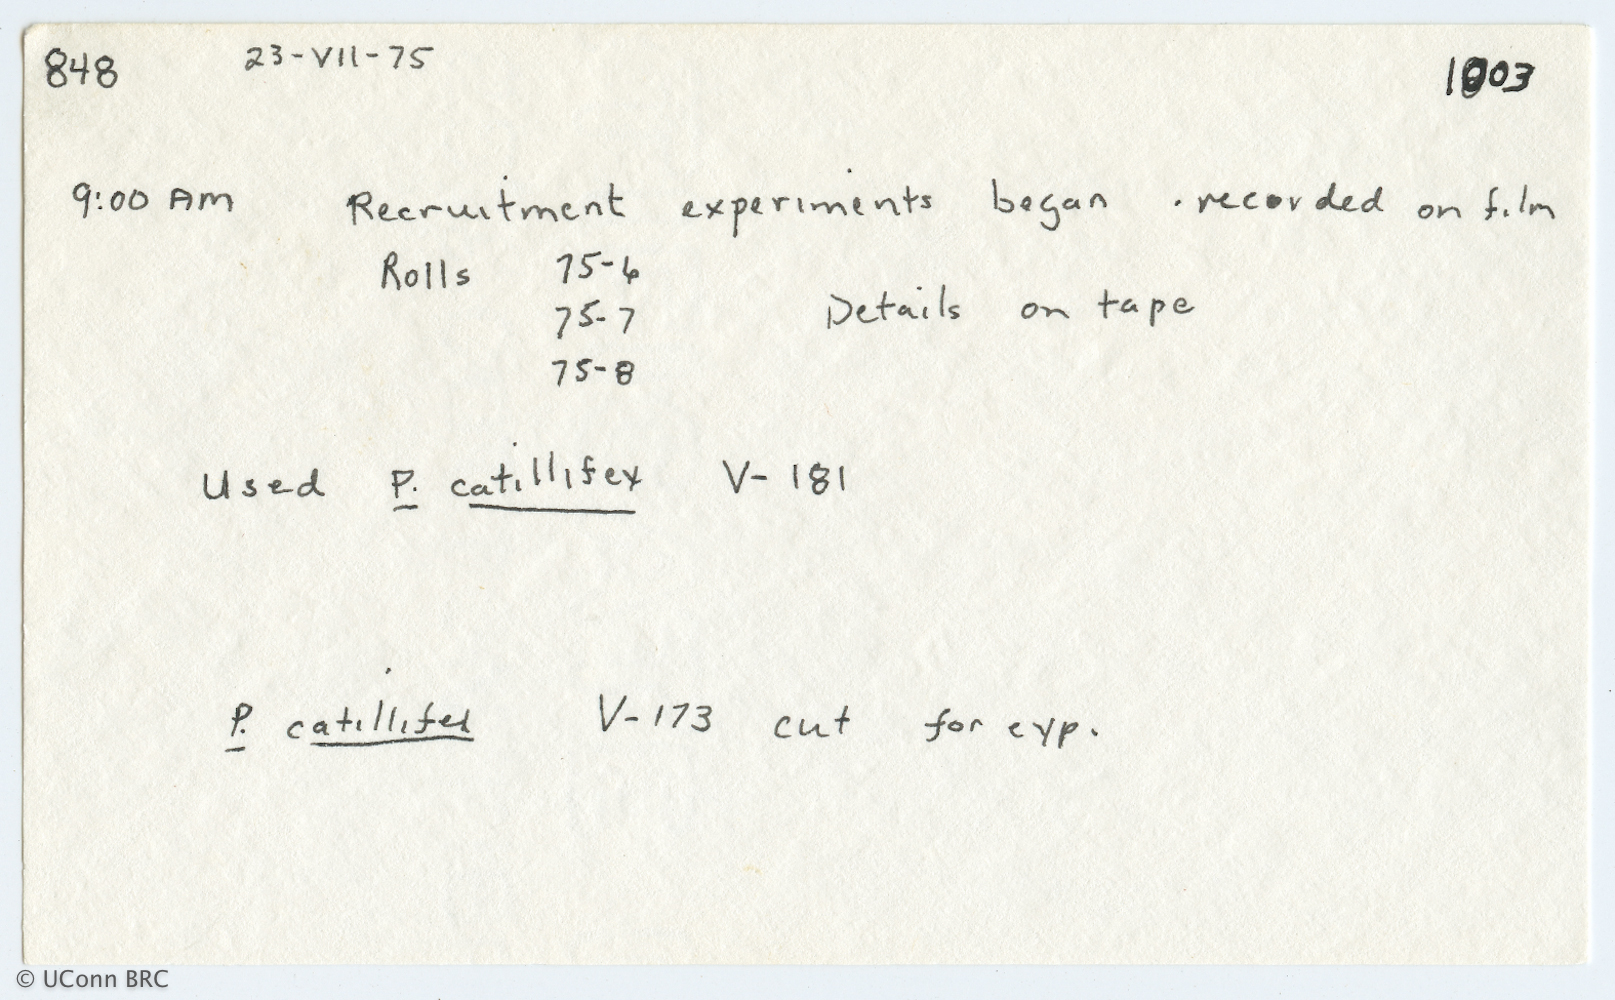 848 23-VII-75 1003
9:00 AM Recruitment experiments began . recorded on film
Rolls 75-6
75-7 Details on tape
75-8
Used P. catillifex V-181
P. catillifex V-173 cut for exp.
© UConn BRC